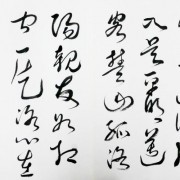 入吳平明送
客楚山孤洛
陽親友如相
问一片冰心在